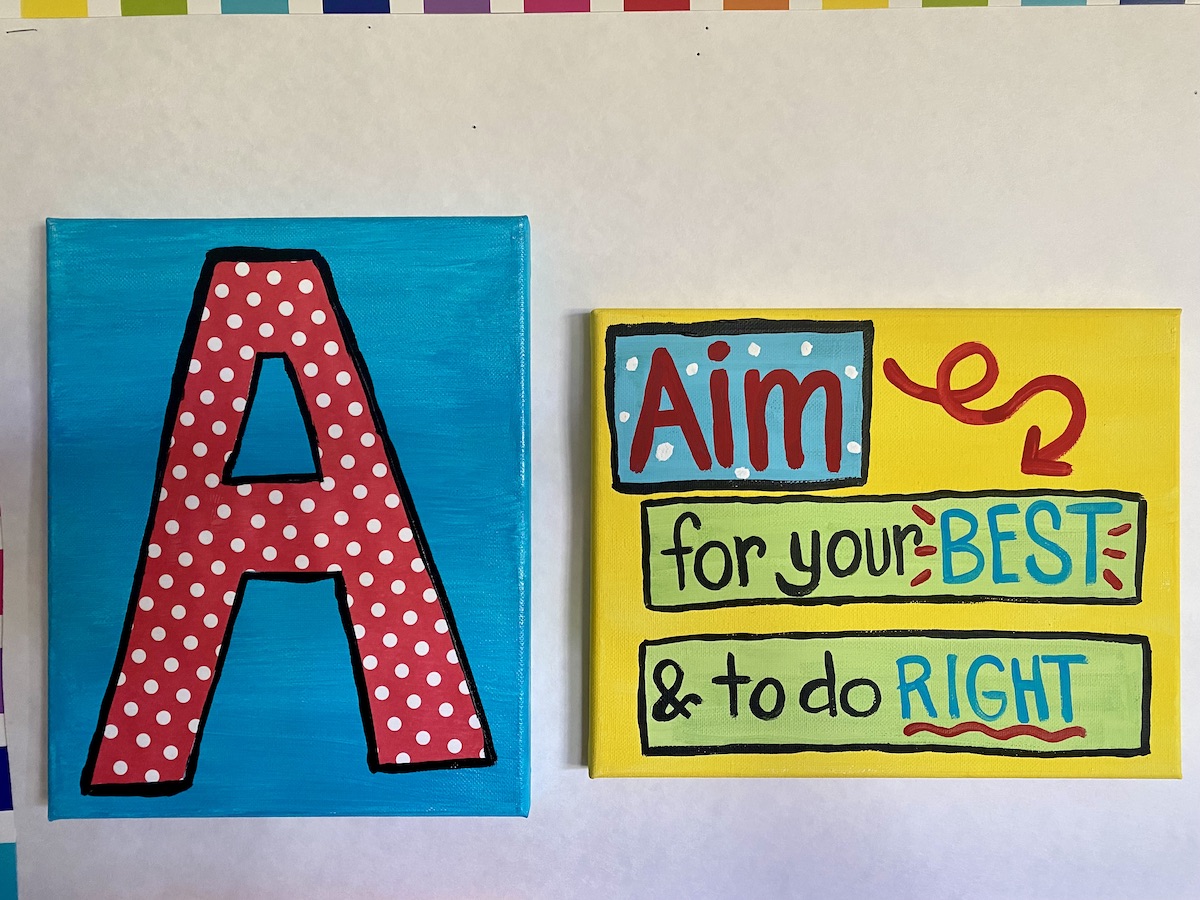 A
Aim
for your BEST
& to do RIGHT